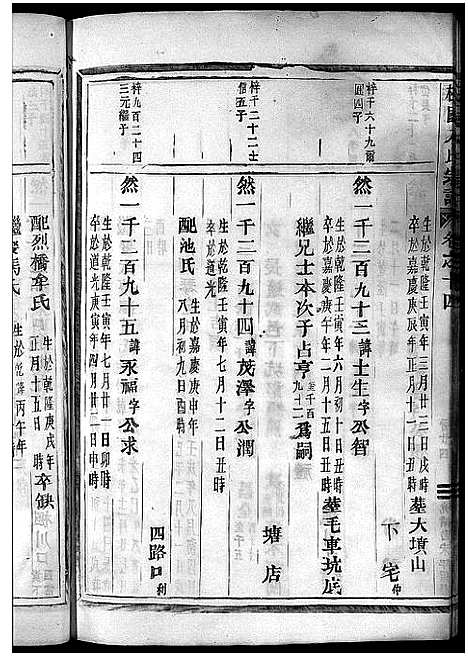 梓千六十九爾
四四子
生於乾隆壬寅年三月廿三日戌時墓大墳山
卒於嘉慶庚辰年十一月十一日丑時 下宅
然一千二百九十三諱士生字公智
生於乾隆壬寅年六月初十日丑時
卒於嘉慶庚午年二月十五日未時墓毛車坑底
繼兄士本次子占亨 爲嗣
梓千二十二士
信五子
然一千二百九十四諱茂澤字公潤
生於乾隆壬寅年七月十二日丑時
卒於道光 塘店
配池氏 生於嘉慶庚申年
八月初九日酉時
梓九百二十四
三元繼子
然一千二百九十五諱永福字公求
生於乾隆壬寅年七月廿一日卯時
卒於道光庚寅年四月廿二日申時 四路口
配烈橋牟氏 生於乾隆庚戌年
正月十五日 時卒缺